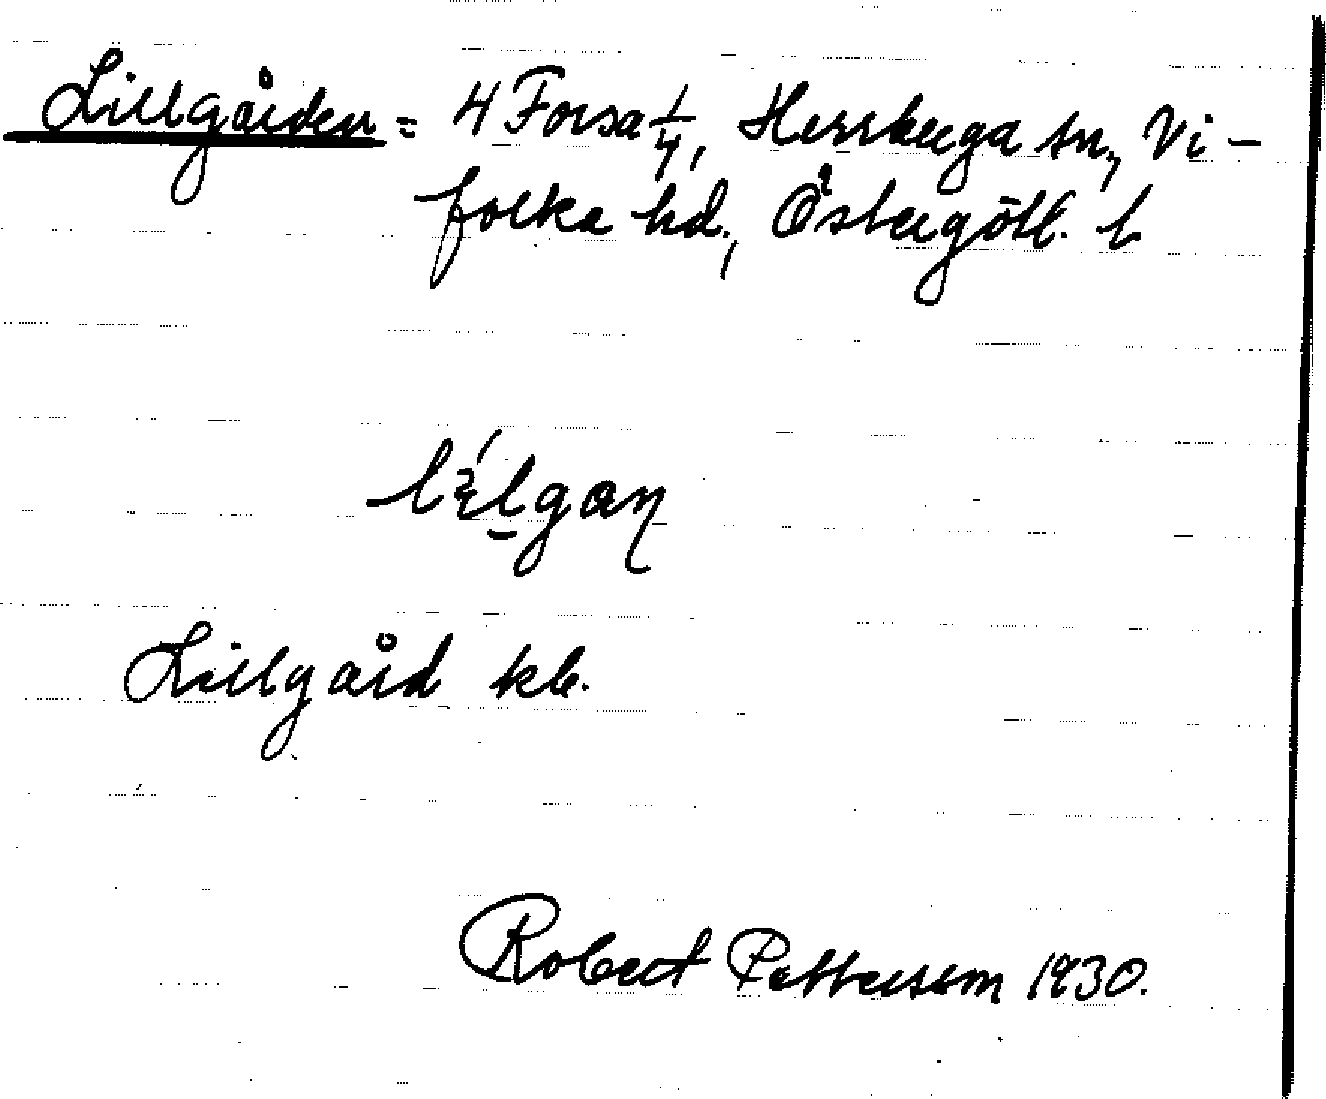 Lillgården = 4 Forsa 1/4, Herrberga sn, Vi-
folka hd., Östergötl. l.
Lillgård kb.
Robert Pettersson 1930.